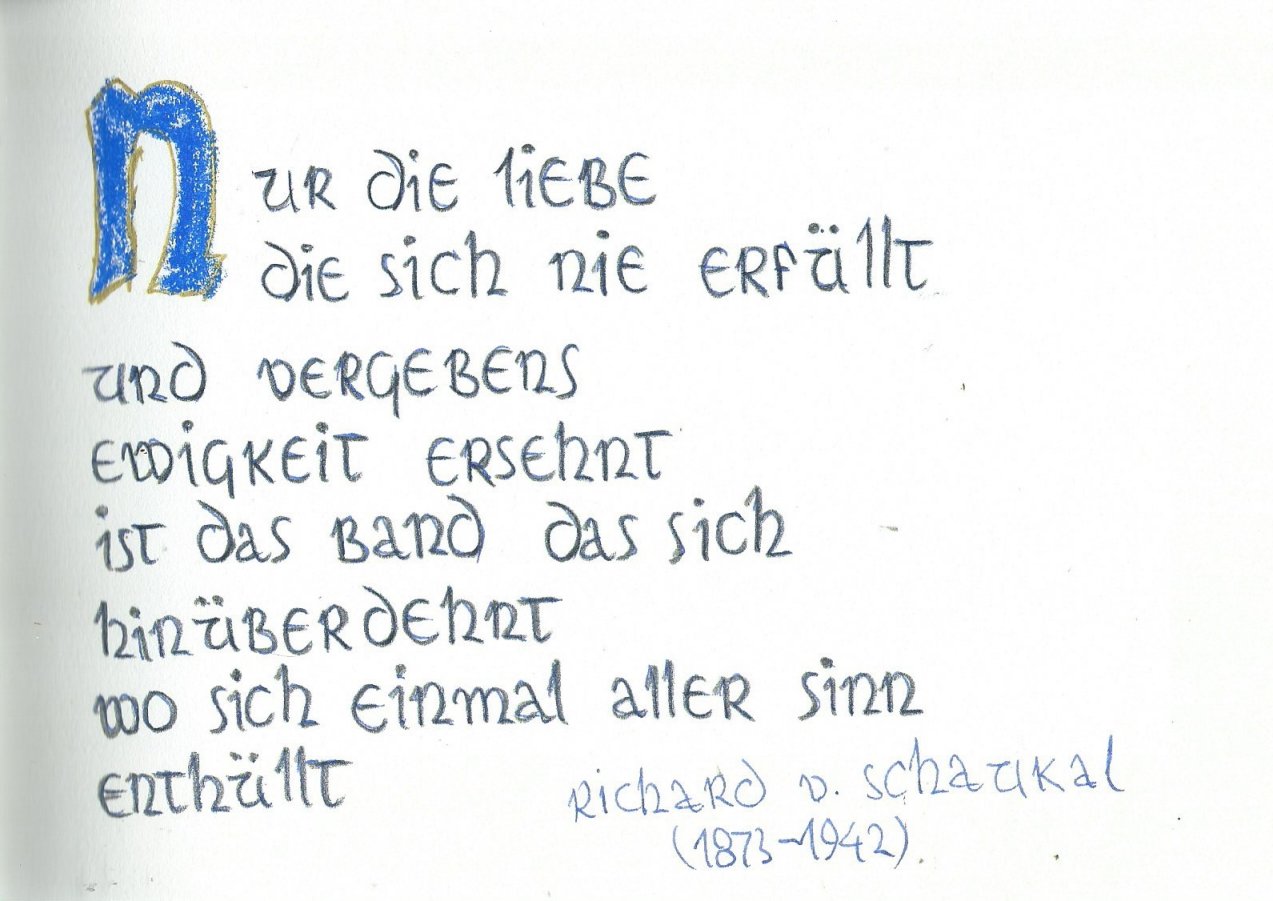 Nur die liebe
die sich nie erfüllt
und vergebens
ewigkeit ersehnt
ist das band das sich
hinüberdehnt
wo sich einmal aller sinn
enthüllt
Richard v. Schaukal
(1873-1942).